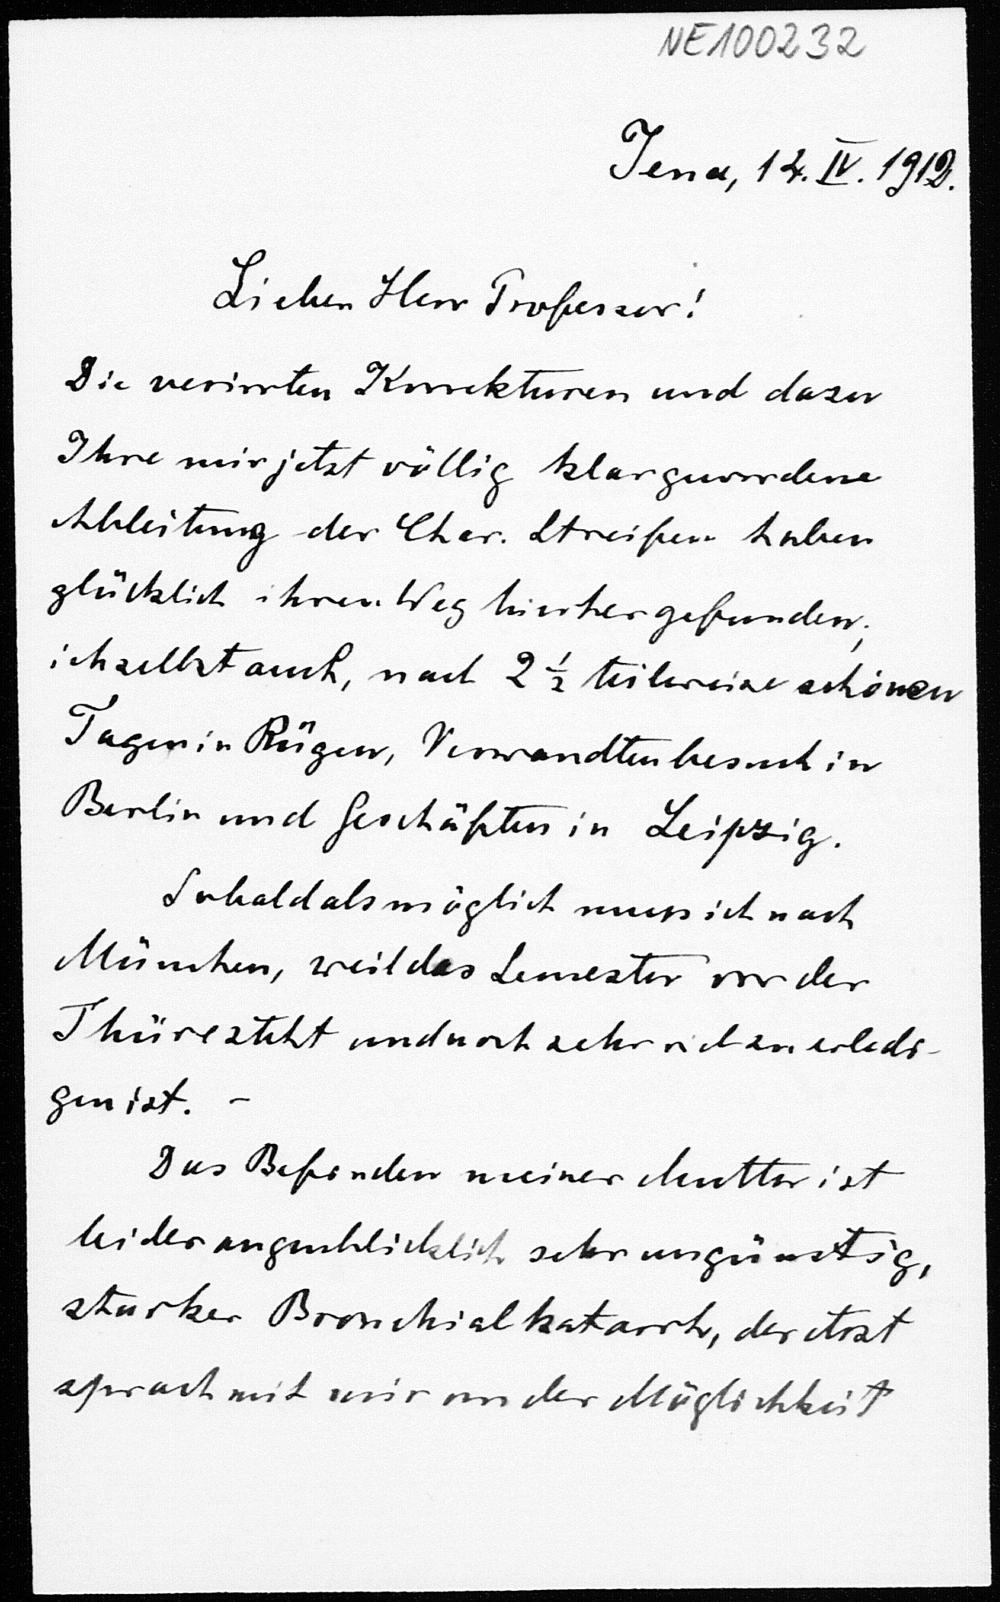 NE100232
Jena, 14. IV. 1912.
Lieber Herr Professor!
Die verirrten Korrekturen und dazu
Ihre mir jetzt völlig klargewordene
Ableitung der Char. Streifen haben
glücklich ihren Weg hierher gefunden;
ich selbst auch, nach 2 1/2 teilweise schönen
Tagen in Rügen, Verwandtenbesuch in
Berlin und Geschäften in Leipzig.
Sobald als möglich muss ich nach
München, weil das Semester vor der
Thüre steht und noch sehr viel zu erledi-
gen ist. –
Das Befinden meiner Mutter ist
leider augenblicklich sehr ungünstig,
starker Bronchialkatarrh, der Arzt
sprach mit mir von der Möglichkeit